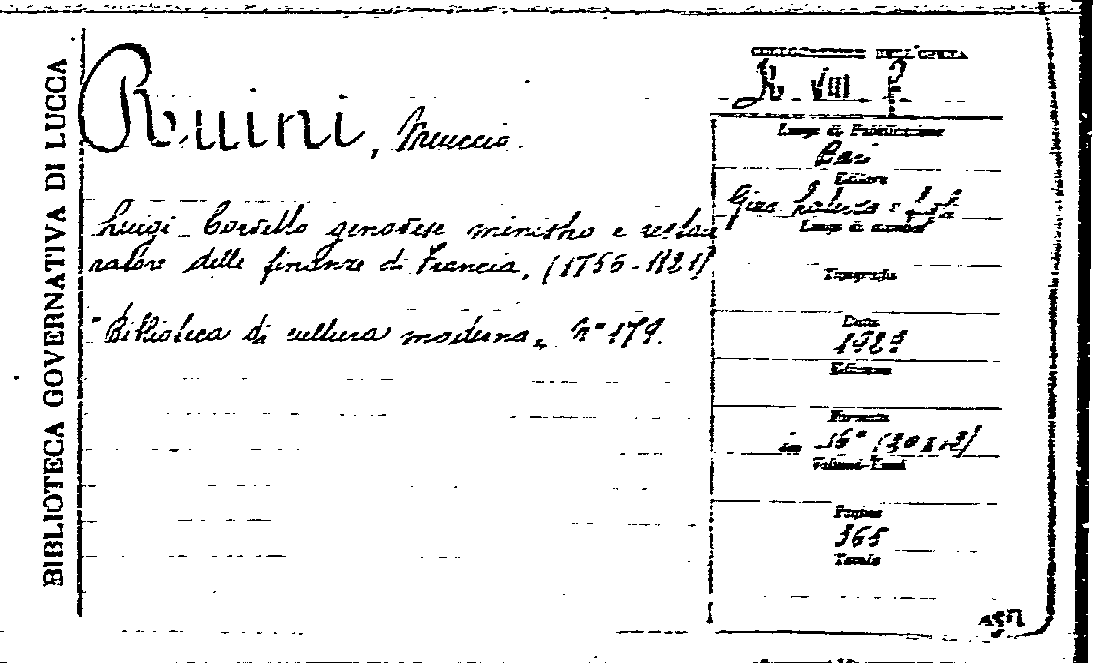 BIBLIOTECA GOVERNATIVA DI LUCCA
Ruini, Meuccio.
Luigi Corvetto genovese ministro e restau
ratore delle finanze di Francia, (1756-1821)
"Biblioteca di cultura moderna„ N° 179.
COLLOCAZIONE DELL'OPERA
R VIII
Luogo di Pubblicazione
Bari
Editore
Gius Laterza e figli
Luogo di stampa
Tipografia
Data
1929
Edizione
Formato
in 16°
Volumi-Tomi
Pagine
365
Tavole